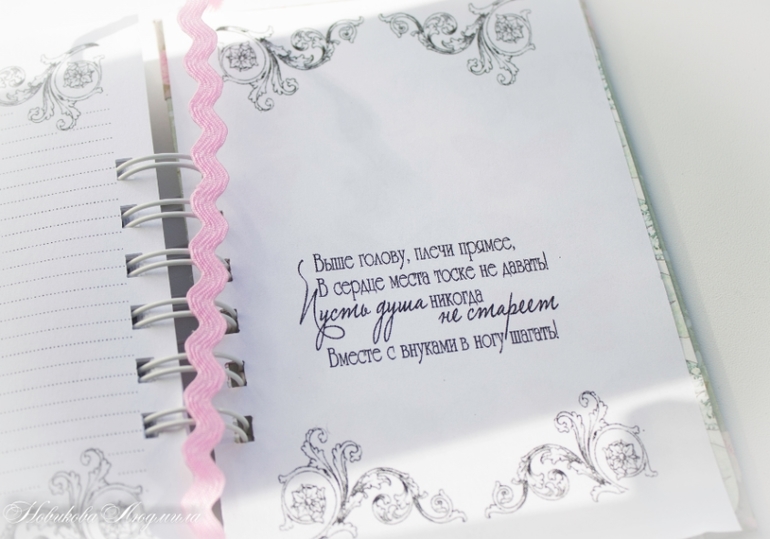 Выше голову, плечи прямее,
В сердце места тоске не давать!
Пусть душа никогда
не стареет
Вместе с внуками в ногу шагать!
Новикова Людмила